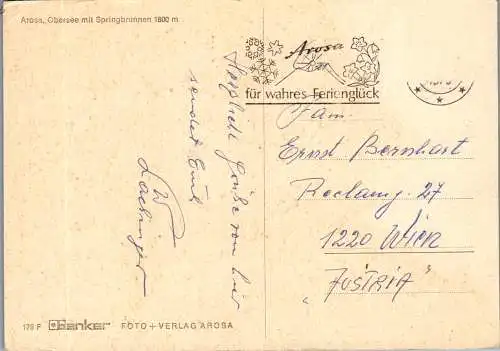 Arosa, Obersee mit Springbrunnen 1800 m
Herzliche Grüße von hier
sendet Euch
W
Arosa
für wahres Ferienglück
Fam.
Ernst Bernhart
Reclamg. 27
1220 Wien
"AUSTRIA"
178 P Danker FOTO + VERLAG AROSA